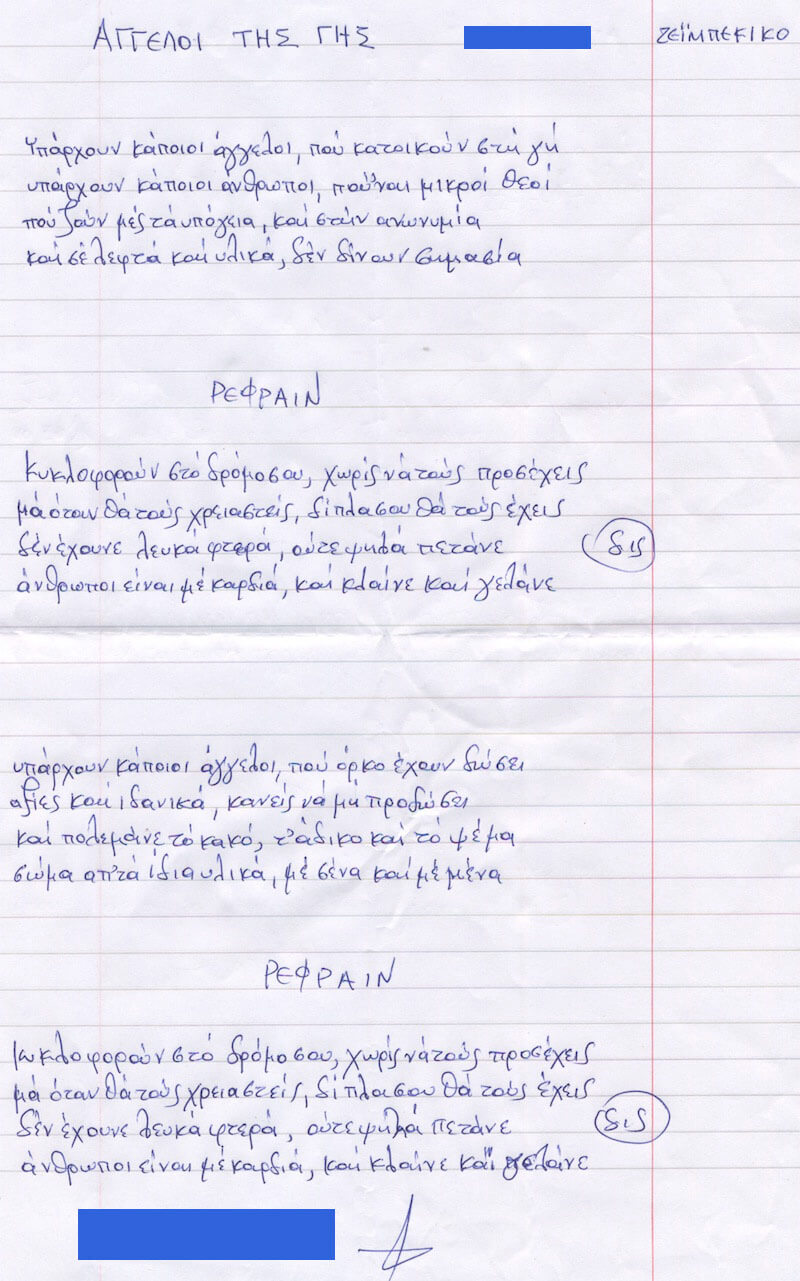 ΑΓΓΕΛΟΙ ΤΗΣ ΓΗΣ ΖΕΪΜΠΕΚΙΚΟ
Υπάρχουν κάποιοι άγγελοι, πού κατοικούν στή γή
υπάρχουν κάποιοι άνθρωποι, πού'ναι μικροί θεοί
πού ζούν μές τά υπόγεια, καί στήν ανωνυμία
καί σέ λεφτά καί υλικά, δέν δίνουν σημασία
ΡΕΦΡΑΙΝ
Κυκλοφορούν στό δρόμο σου, χωρίς νά τούς προσέχεις
μά όταν θά τούς χρειαστείς, δίπλα σου θά τούς έχεις
δέν έχουνε λευκά φτερά, ούτε ψηλά πετάνε
δις
άνθρωποι είναι μέ καρδιά, καί κλαίνε καί γελάνε
υπάρχουν κάποιοι άγγελοι, πού όρκο έχουν δώσει
αξίες καί ιδανικά, κανείς νά μή προδώσει
καί πολεμάνε τό κακό, τ'άδικο καί τό ψέμα
σώμα απ'τά ίδια υλικά, μέ σένα καί μέ μένα
ΡΕΦΡΑΙΝ
Κυκλοφορούν στό δρόμο σου, χωρίς νά τούς προσέχεις
μά όταν θά τούς χρειαστείς, δίπλα σου θά τούς έχεις
δέν έχουνε λευκά φτερά, ούτε ψηλά πετάνε
δις
άνθρωποι είναι μέ καρδιά, καί κλαίνε καί γελάνε